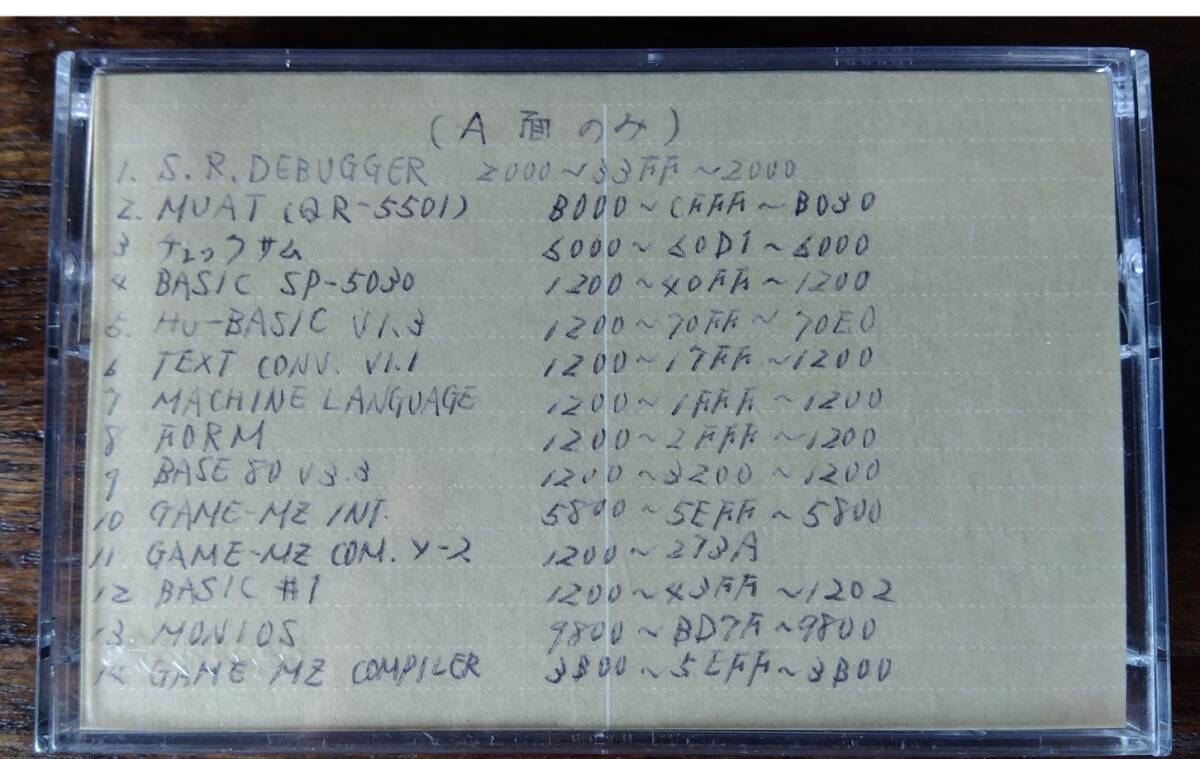 (A面のみ)
1. S.R.DEBUGGER 2000~33FF~2000
2. MUAT (QR-5501) B000~CFFF~B030
3 チェックサム 6000~60D1~6000
4 BASIC SP-5030 1200~40FF~1200
5. Hu-BASIC V1.3 1200~70FF~70E0
6 TEXT CONV. V1.1 1200~17FF~1200
7 MACHINE LANGUAGE 1200~1FFF~1200
8 FORM 1200~2FFF~1200
9 BASE 80 V3.3 1200~3200~1200
10 GAME-MZ INT. 5800~5EFF~5800
11 GAME-MZ COM. Y-2 1200~273A
12 BASIC #1 1200~43FF~1202
13 MONIOS 9800~BD7F~9800
14 GAME-MZ COMPILER 3B00~5EFF~3B00